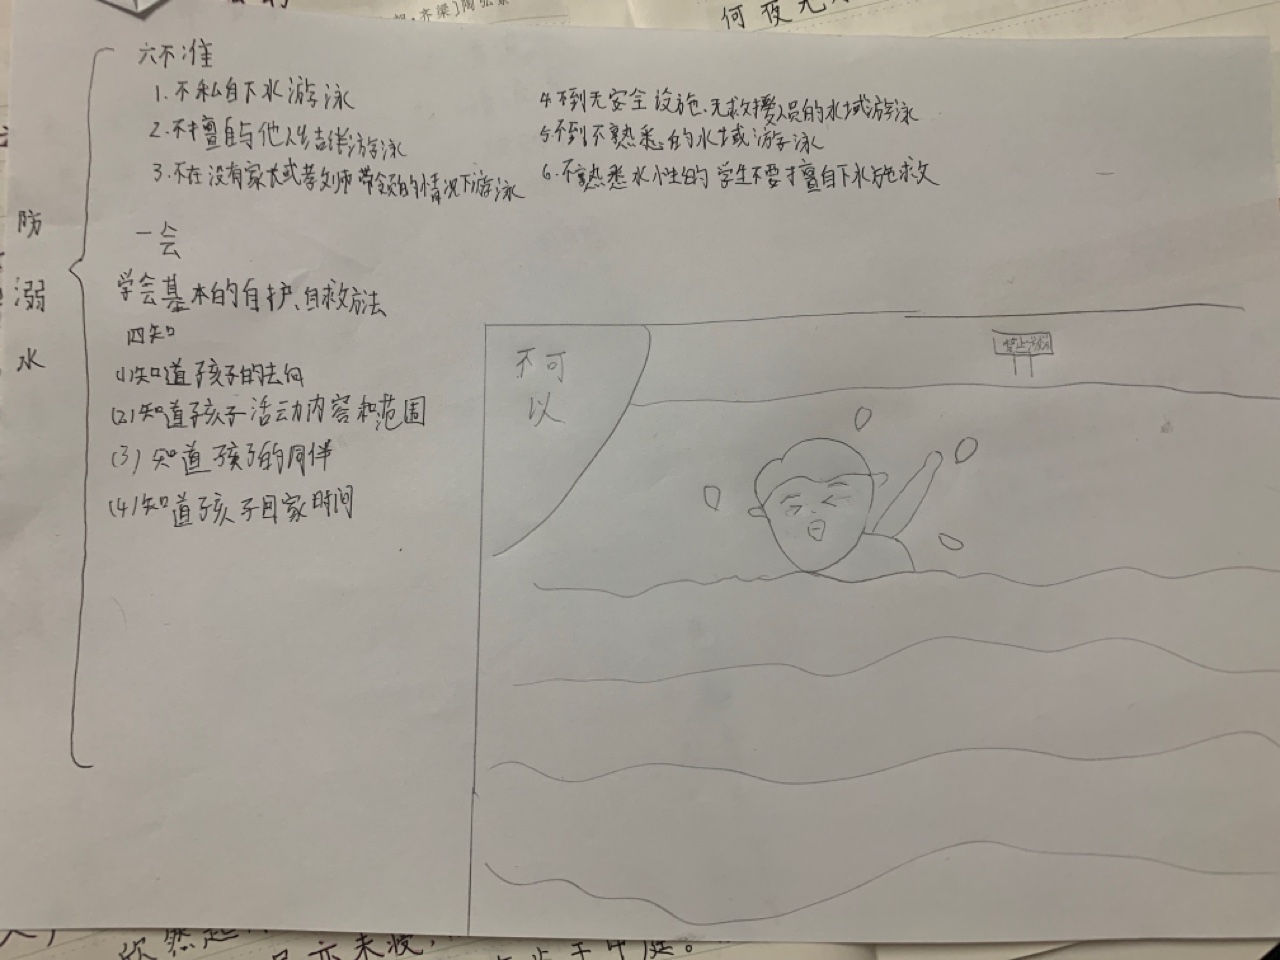 何夜无
齐梁]陶弘景
防溺水
六不准
1.不私自下水游泳
2.不擅自与他人结伴游泳
3.不在没有家长或教师带领的情况下游泳
4.不到无安全设施、无救援人员的水域游泳
5.不到不熟悉的水域游泳
6.不熟悉水性的学生不要擅自下水施救
一会
学会基本的自护、自救方法
四知
(1)知道孩子的去向
(2)知道孩子活动内容和范围
(3)知道孩子的同伴
(4)知道孩子回家时间
不可
以
禁止游泳
欣然起
亦未寝,
于中庭。